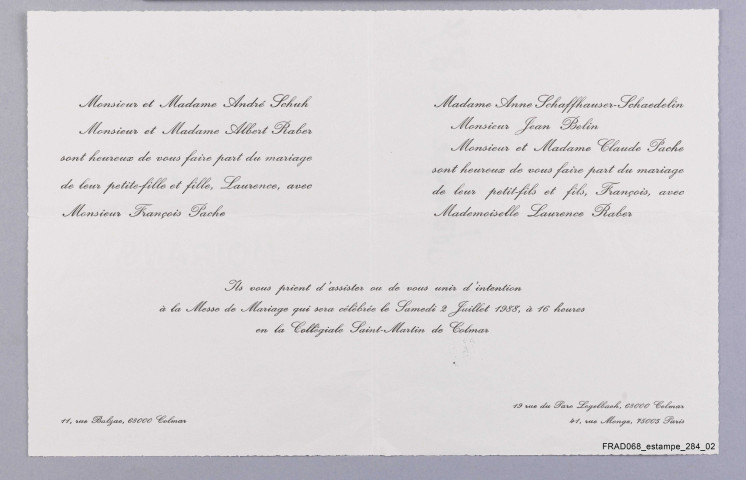 Monsieur et Madame André Schuh
Monsieur et Madame Albert Raber
sont heureux de vous faire part du mariage
de leur petite-fille et fille, Laurence, avec
Monsieur François Pache
Madame Anne Schaffhauser-Schaedelin
Monsieur Jean Belin
Monsieur et Madame Claude Pache
sont heureux de vous faire part du mariage
de leur petit-fils et fils, François, avec
Mademoiselle Laurence Raber
Ils vous prient d'assister ou de vous unir d'intention
à la Messe de Mariage qui sera célébrée le Samedi 2 Juillet 1988, à 16 heures
en la Collégiale Saint-Martin de Colmar
11, rue Balzac, 68000 Colmar
19 rue du Parc Logelbach, 68000 Colmar
41, rue Monge, 75005 Paris
FRAD068_estampe_284_02